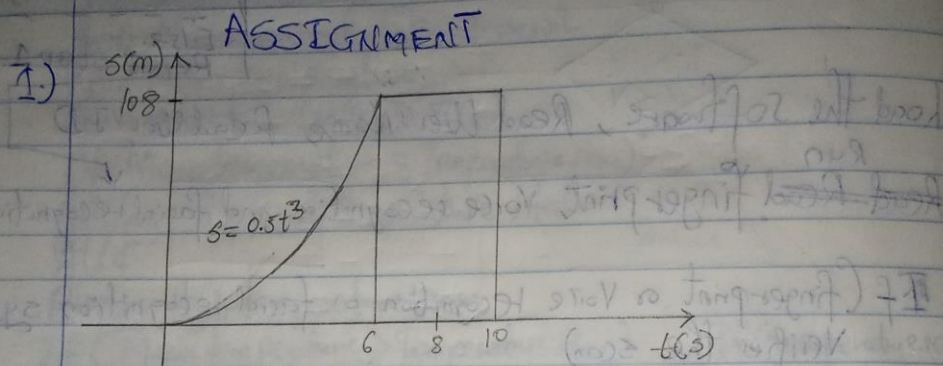 ASSIGNMENT
1.)
s(m)
108
s = 0.5t³
6 8 10 t(s)